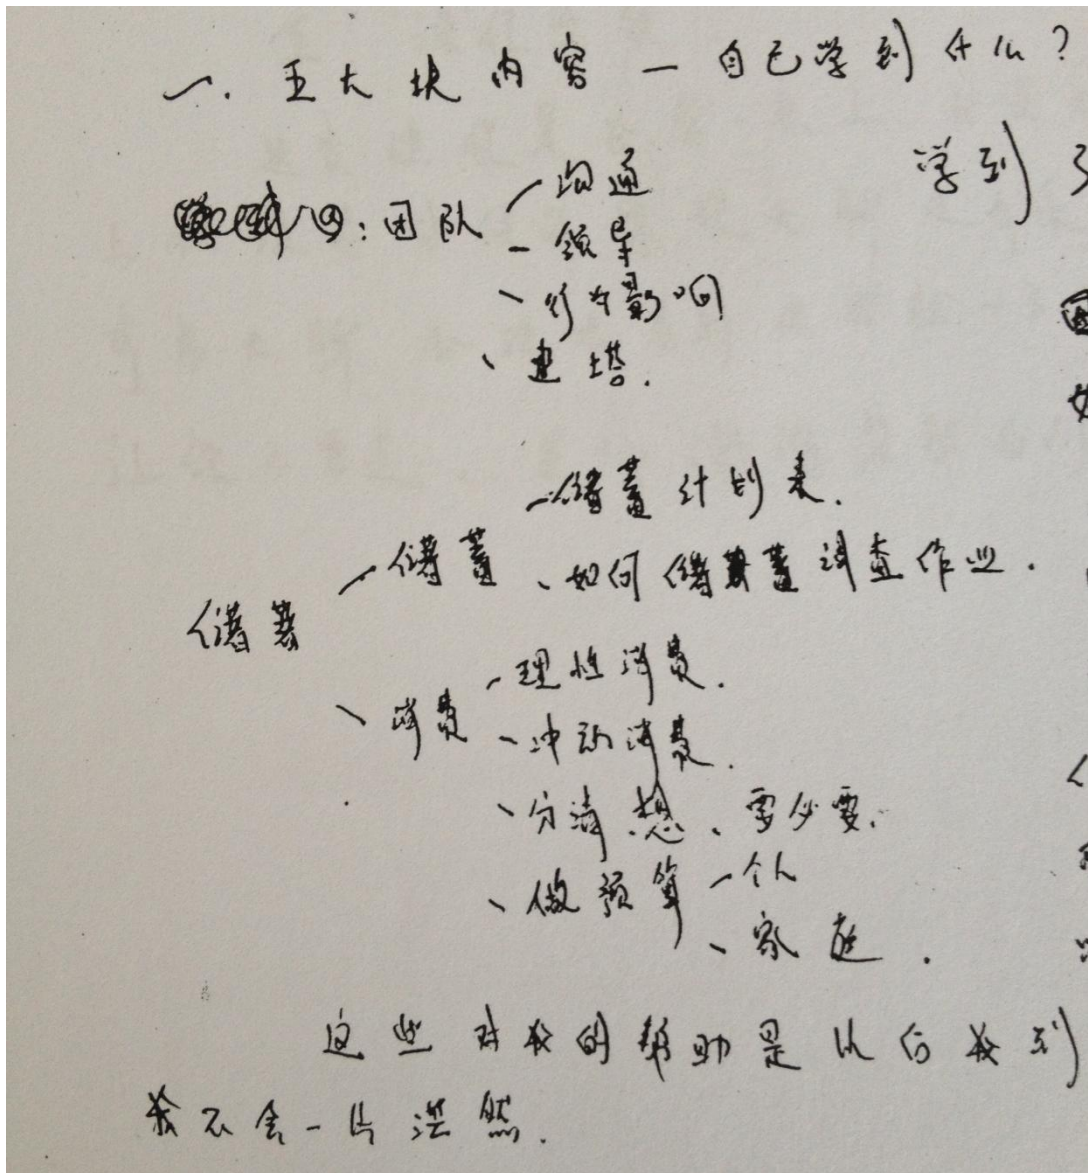 一. 五大块内容 — 自己学到什么?
学到了
四: 团队 – 沟通
– 领导
– 行为影响
– 建塔.
– 储蓄计划表.
– 储蓄 – 如何储蓄调查作业.
储蓄
– 理性消费.
– 消费 – 冲动消费.
– 分清想、需必要.
– 做预算 – 个人
– 家庭.
这些对我的帮助是以后我到
我不会一片茫然.